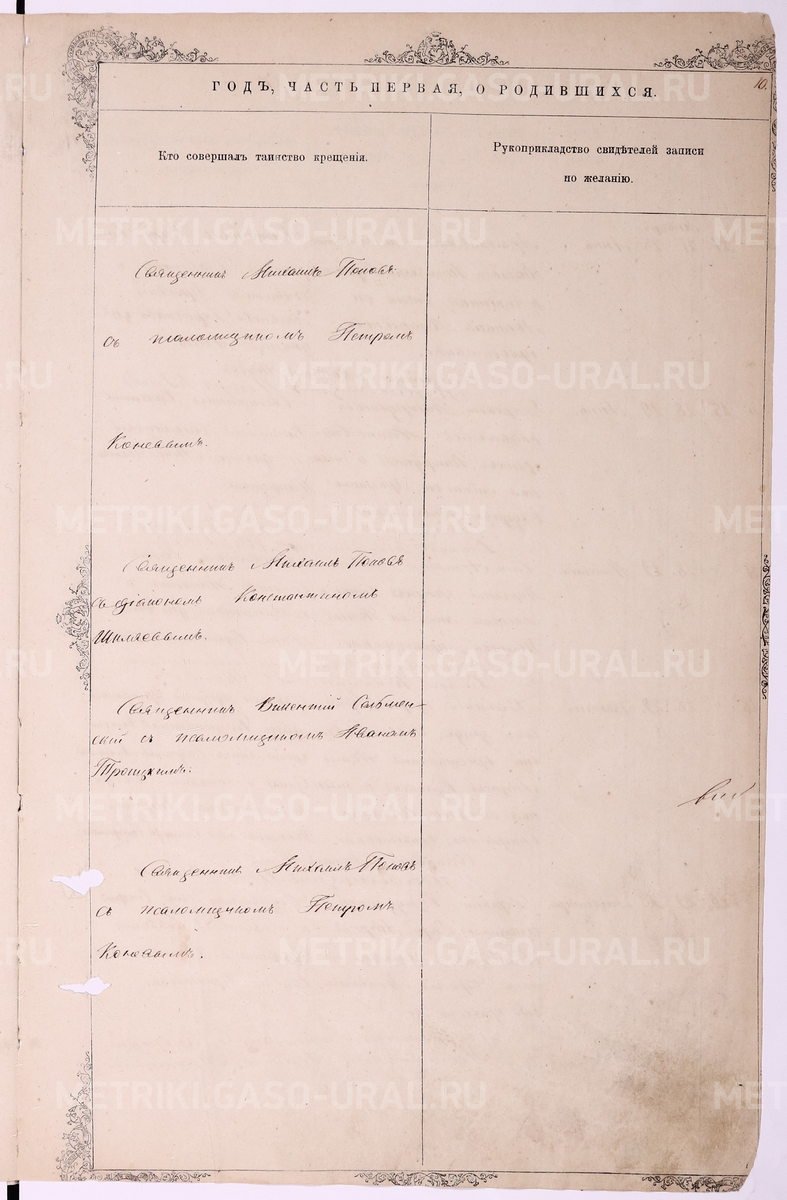 10.
ГОДЪ, ЧАСТЬ ПЕРВАЯ, О РОДИВШИХСЯ.
Кто совершалъ таинство крещенія.
Рукоприкладство свидѣтелей записи
по желанію.
Священникъ Михаилъ Поповъ
съ псаломщикомъ Петромъ
Коневымъ.
Священникъ Михаилъ Поповъ
съ діакономъ Константиномъ
Шиляевымъ.
Священникъ Викентій
съ псаломщикомъ Иваномъ
Троицкимъ.
Священникъ Михаилъ Поповъ
съ псаломщикомъ Петромъ
Коневымъ.
METRIKI.GASO-URAL.RU